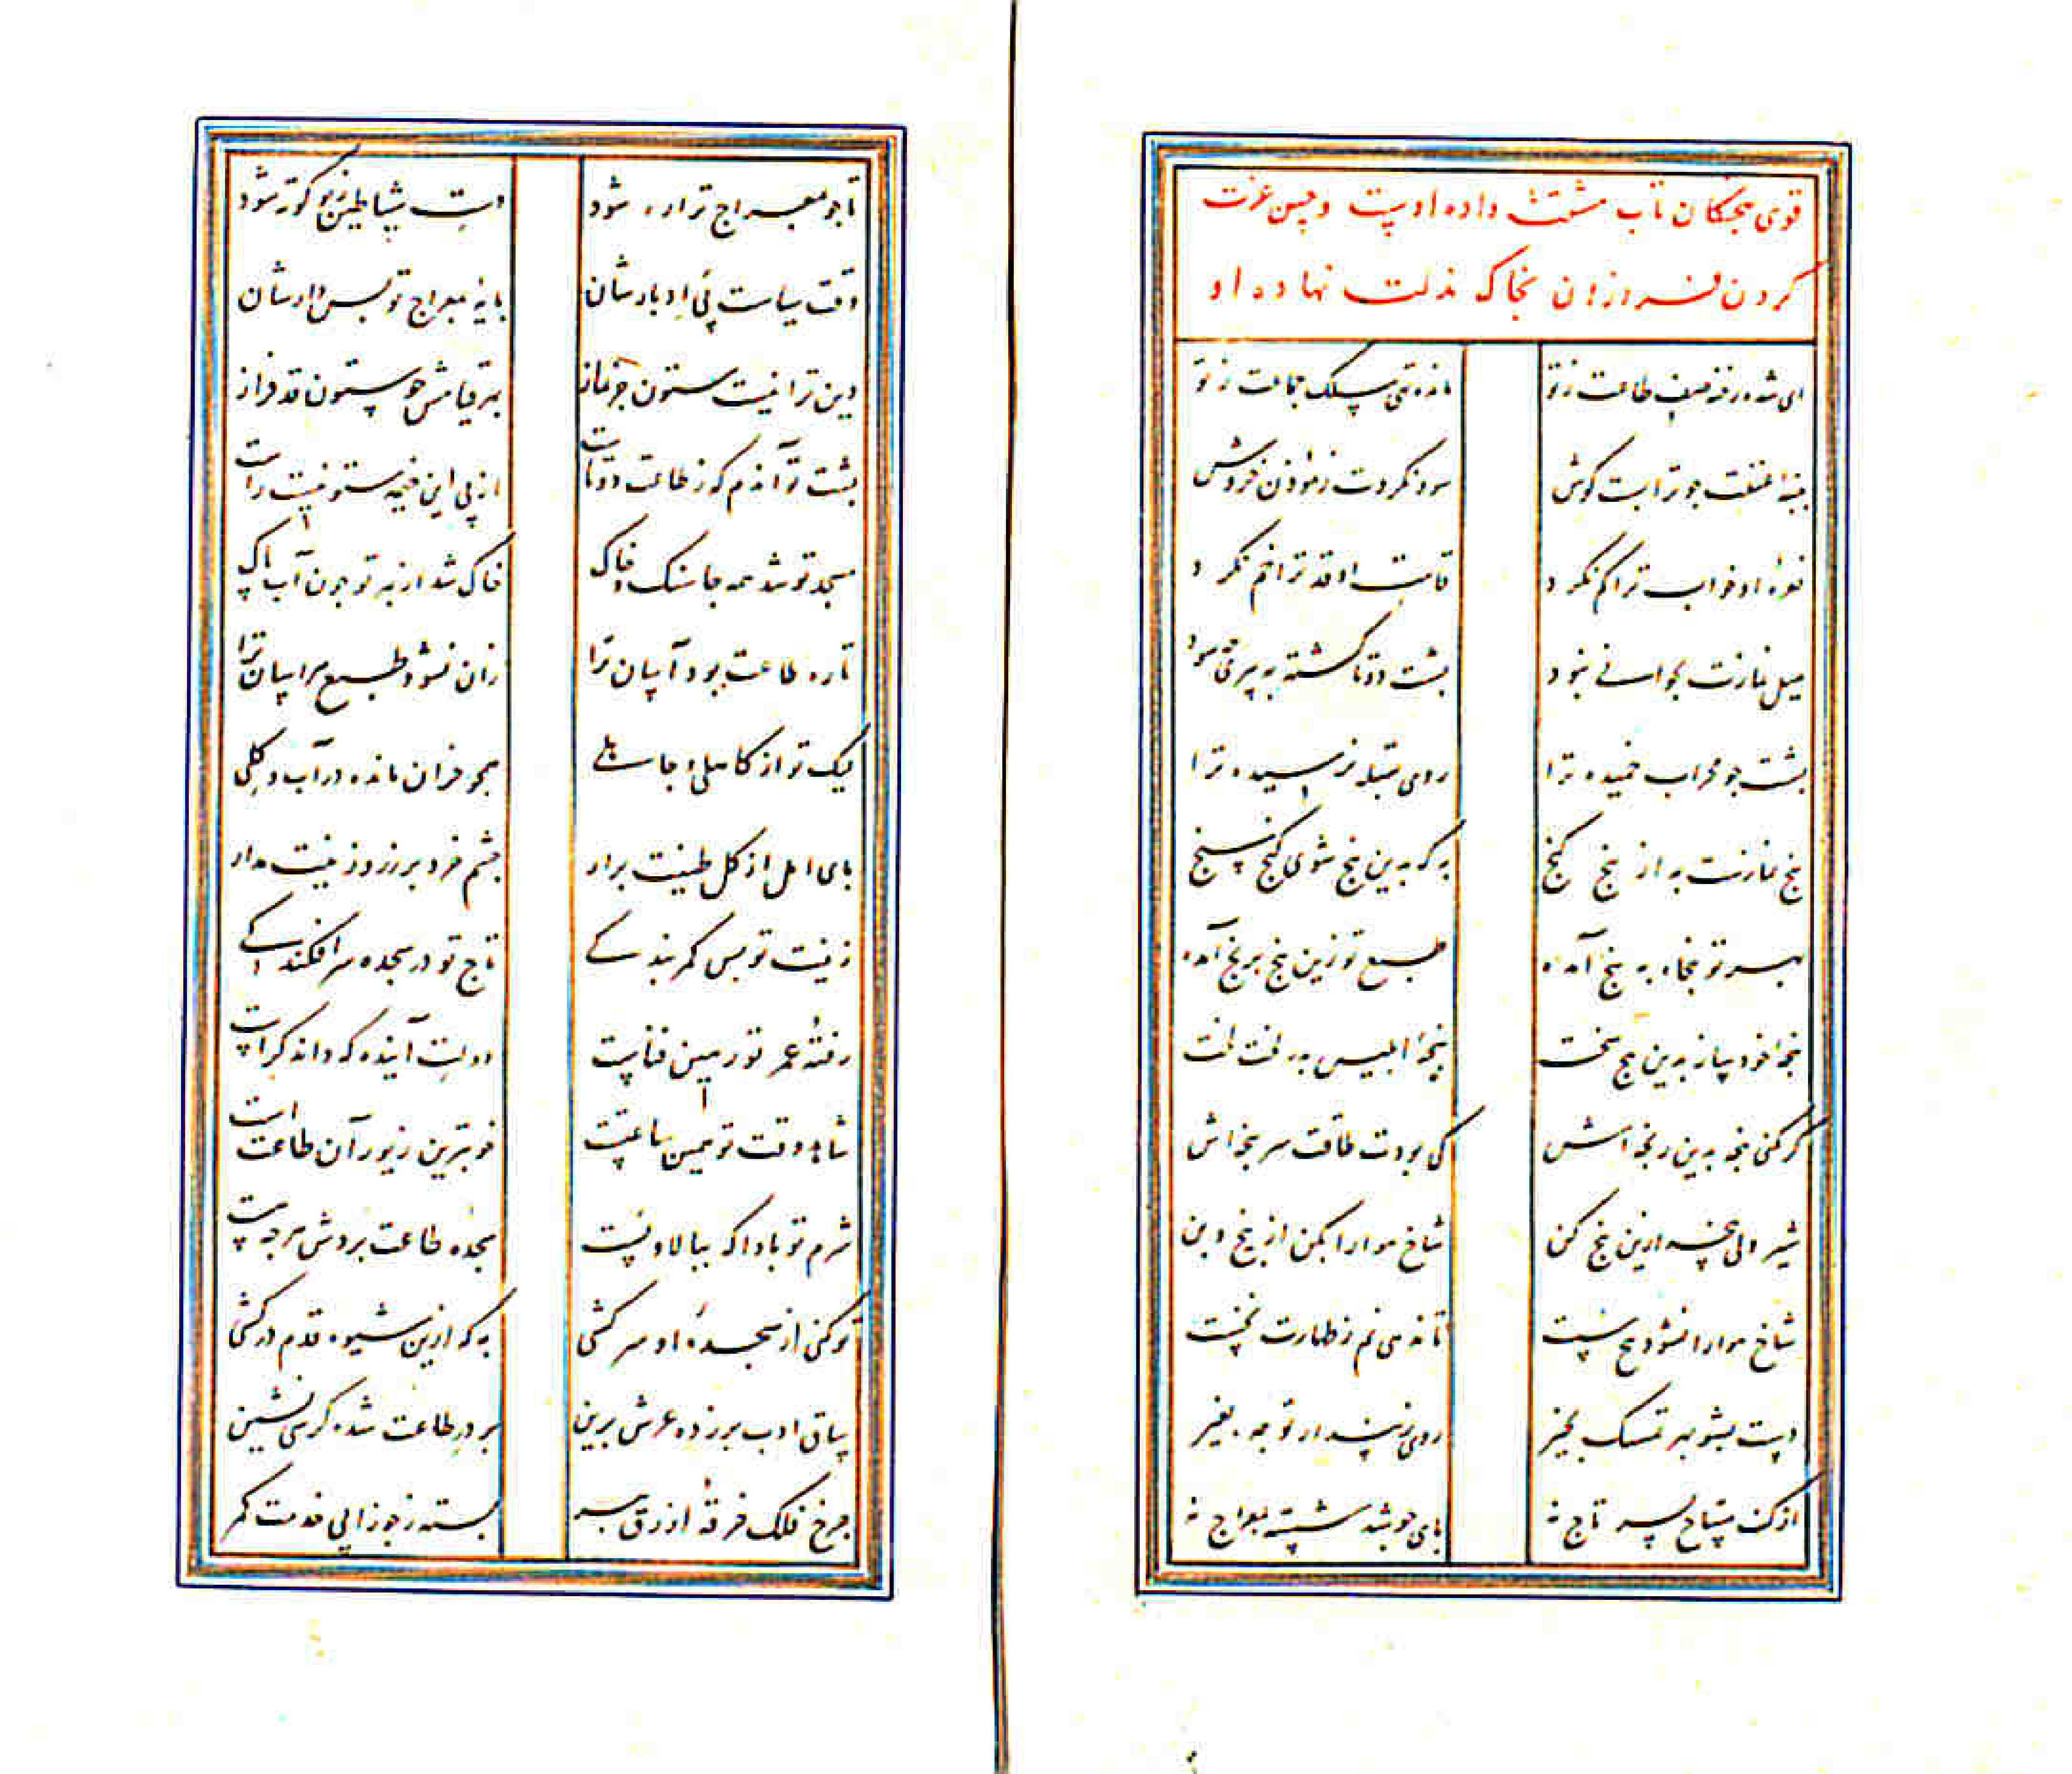 قوی پنجگان تاب مشقت داده اوست و حسن عزت
گردن فرازان بخاک مذلت نهاده او
ای شده رخنه صف طاعت ز تو
مانده تهی سلک جماعت ز تو
پنبه غفلت چو ترا بست گوش
سود نکردت ز مؤذن خروش
نعره او خواب ترا کم نکرد
قامت او قد ترا خم نکرد
میل نمازت بجوانی نبود
پشت دوتا گشته به پیری چه سود
پشت چو محراب خمیده ترا
روی بقبله نرسیده ترا
پنج نمازت به از پنج گنج
به که بدین پنج شوی گنج سنج
بهر تو پنجاه به پنج آمده
طبع تو زین پنج برنج آمده
پنجه خود ساز بدین پنج سخت
پنجه ابلیس بدر لخت لخت
گر کنی پنجه بدین رنجه اش
کی بودت طاقت سرپنجه اش
شیر دلی پنجه ازین پنج کن
شاخ هوا را بکن از بیخ و بن
شاخ هوا را نشود بیخ سست
تا ندهی نم ز طهارت نخست
دست بشو به تمسک بخیز
روی ز پندار توجه بغیر
از کف مساح بسر تاج نه
پای چو شد شسته بمعراج نه
تا چو بمعراج ترا ره شود
دست شیاطین ز تو کوته شود
وقت سیاست پی ادبارشان
پایه معراج تو بس دارشان
دین ترا نیست ستون جز نماز
بهر قیامش چو ستون قد فراز
پشت تو آندم که ز طاعت دوتاست
از پی این خیمه ستونیست راست
مسجد تو شد همه جا سنگ و خاک
خاک شد از بهر تو چون آب پاک
تا ره طاعت بود آسان ترا
زان نشود طبع هراسان ترا
لیک تو از کاهلی و جاهلی
همچو خران مانده در آب و گلی
پای امل از گل طینت برار
چشم خرد بر زر و زینت مدار
زینت تو بس کمر بندگی
تاج تو در سجده سرافکندگی
رفته عمر تو رهین فناست
دولت آینده که داند کراست
شاهد وقت تو همین ساعتست
خوبترین زیور آن طاعتست
شرم تو بادا که ببالا و پست
سجده طاعت بردش هر چه هست
تو کنی از سجده او سرکشی
به که ازین شیوه قدم درکشی
ساق ادب بر زده عرش برین
بر در طاعت شده کرسی نشین
چرخ فلک خرقه ازرق ببر
بسته ز جوزا پی خدمت کمر